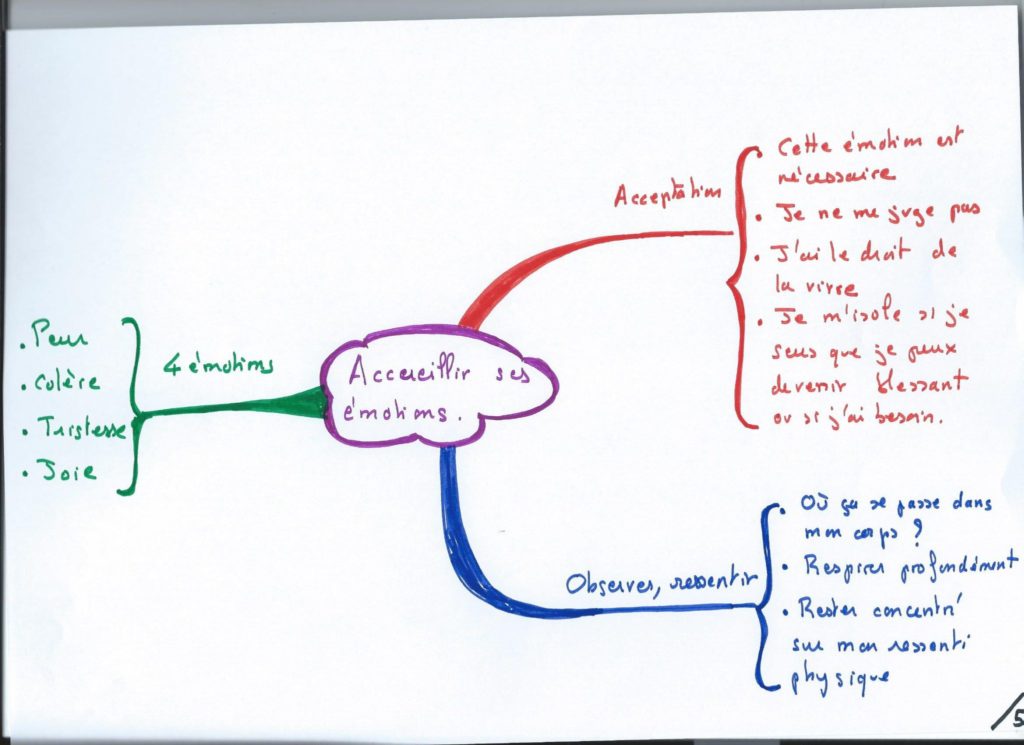 Accueillir ses
émotions.
Acceptation
• Cette émotion est
nécessaire
• Je ne me juge pas
• J'ai le droit de
la vivre
• Je m'isole si je
sens que je peux
devenir blessant
ou si j'ai besoin.
Observer, ressentir
• Où ça se passe dans
mon corps ?
• Respirer profondément
• Rester concentré
sur mon ressenti
physique
4 émotions
• Peur
• Colère
• Tristesse
• Joie
/5